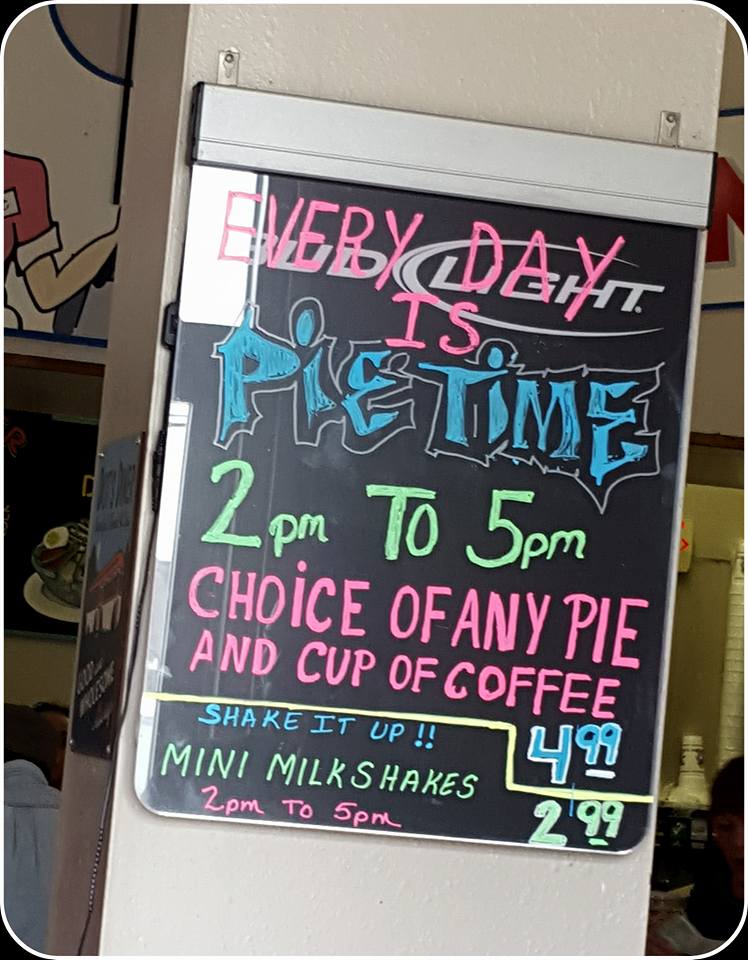 EVERY DAY
BUD LIGHT
IS
PIE TIME
2pm TO 5pm
CHOICE OF ANY PIE
AND CUP OF COFFEE
4.99
SHAKE IT UP !!
MINI MILKSHAKES
2pm TO 5pm
2.99